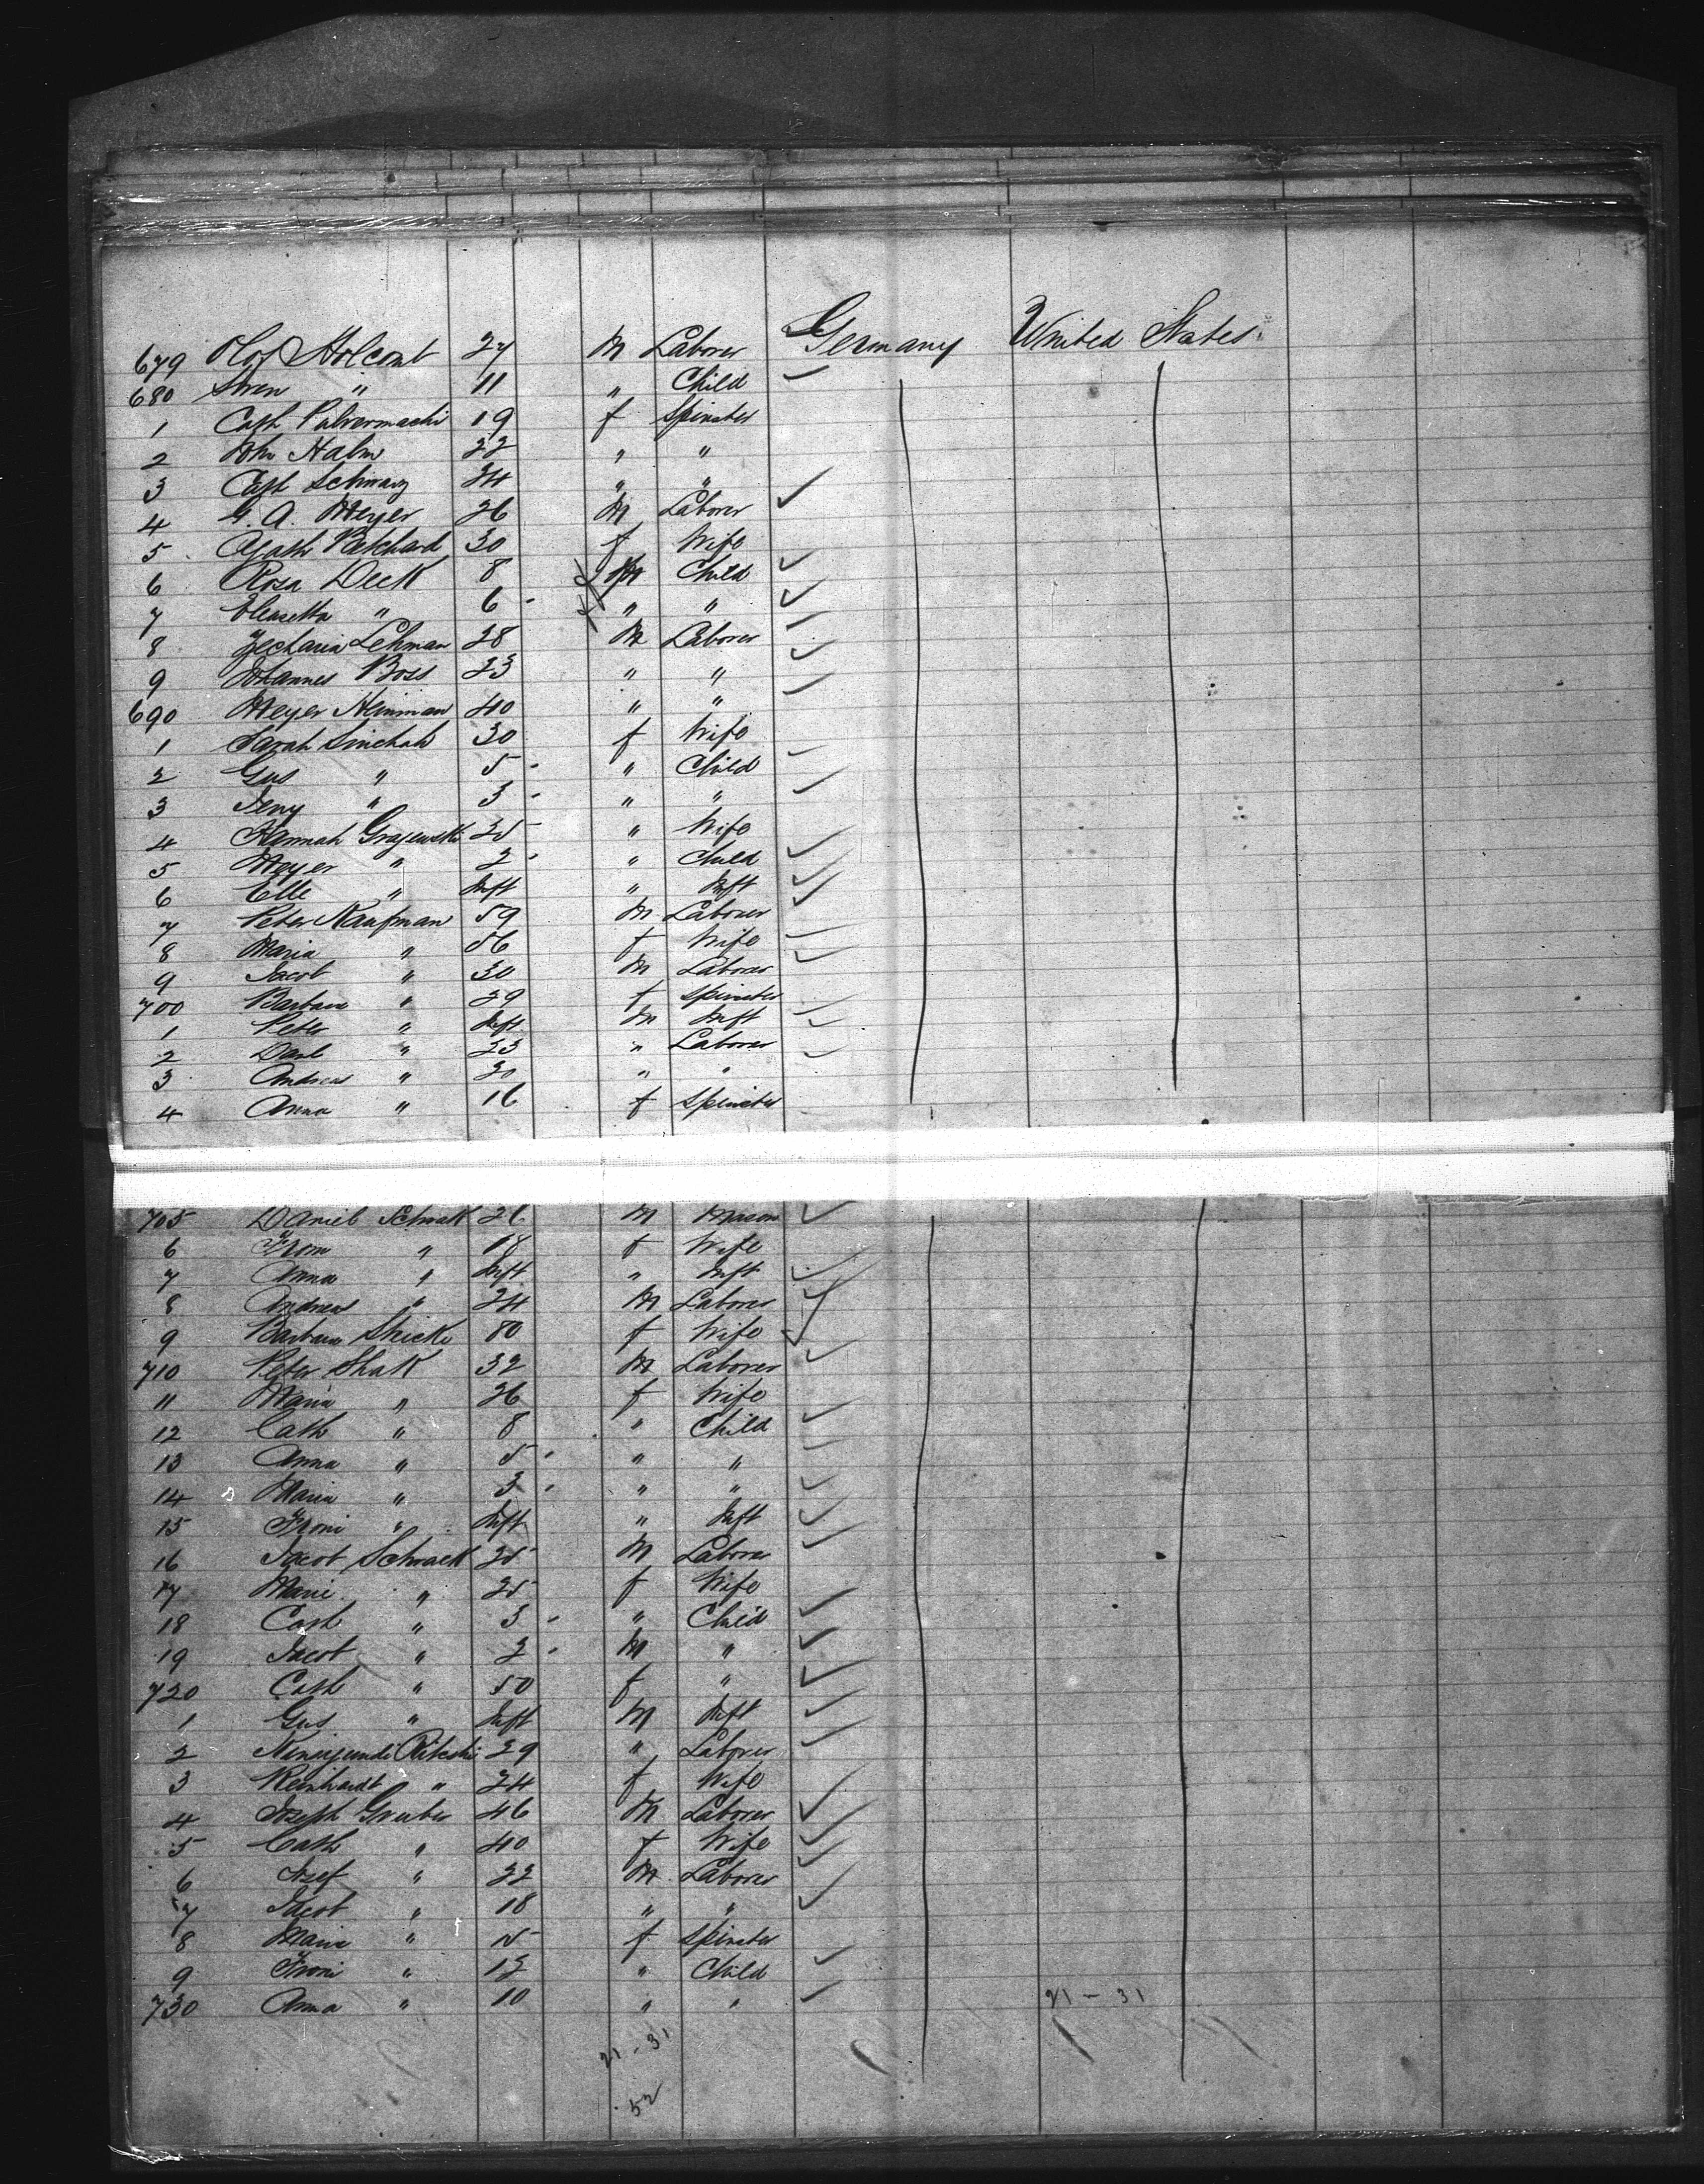 679 Olof Holcomt 27 M Laborer Germany United States
680 Swen " 11 " Child
1 Cath Pulvermachi 19 f Spinster
2 Joh Halm 22 " "
3 Cath Schwarz 24 " "
4 G. A. Meyer 26 M Laborer
5 Agath Retchard 30 f Wife
6 Rosa Deck 8 f M Child
7 " 6 " "
8 Zecharia Lehman 28 M Laborer
9 Johannes Boss 23 " "
690 Meyer Heinman 40 " "
1 Sarah Sinchah 30 f Wife
2 Gus " 5 " Child
3 Jeny " 3 " "
4 Hannah Grajewski 25 " Wife
5 Meyer " 2 " Child
6 Elle " Inft " Inft
7 Peter Kaufman 59 M Laborer
8 Maria " 56 f Wife
9 Jacob " 30 M Laborer
700 Barbara " 29 f Spinster
1 Peter " Inft M Inft
2 " 23 " Laborer
3 Andreas " 20 " "
4 Anna " 16 f Spinster
705 Daniel Schrak 26 M Mason
6 " 18 f Wife
7 Anna " Inft " Inft
8 Andreas " 24 M Laborer
9 Barbara Stricke 80 f Wife
710 Peter Shak 32 M Laborer
11 Maria " 26 f Wife
12 Cath " 8 " Child
13 Anna " 5 " "
14 Maria " 3 " "
15 Froni " Inft " Inft
16 Jacob Schrack 25 M Laborer
17 Marie " 25 f Wife
18 Cath " 3 " Child
19 Jacob " 2 M "
720 Cath " 50 f "
1 Gus " Inft M Inft
2 29 " Laborer
3 Reinhardt " 24 f Wife
4 Joseph Gruber 46 M Laborer
5 Cath " 40 f Wife
6 Josef " 22 M Laborer
7 Jacob " 18 " "
8 Maria " 15 f Spinster
9 Froni " 12 " Child
730 Anna " 10 " "
21 - 31
21 - 31
52